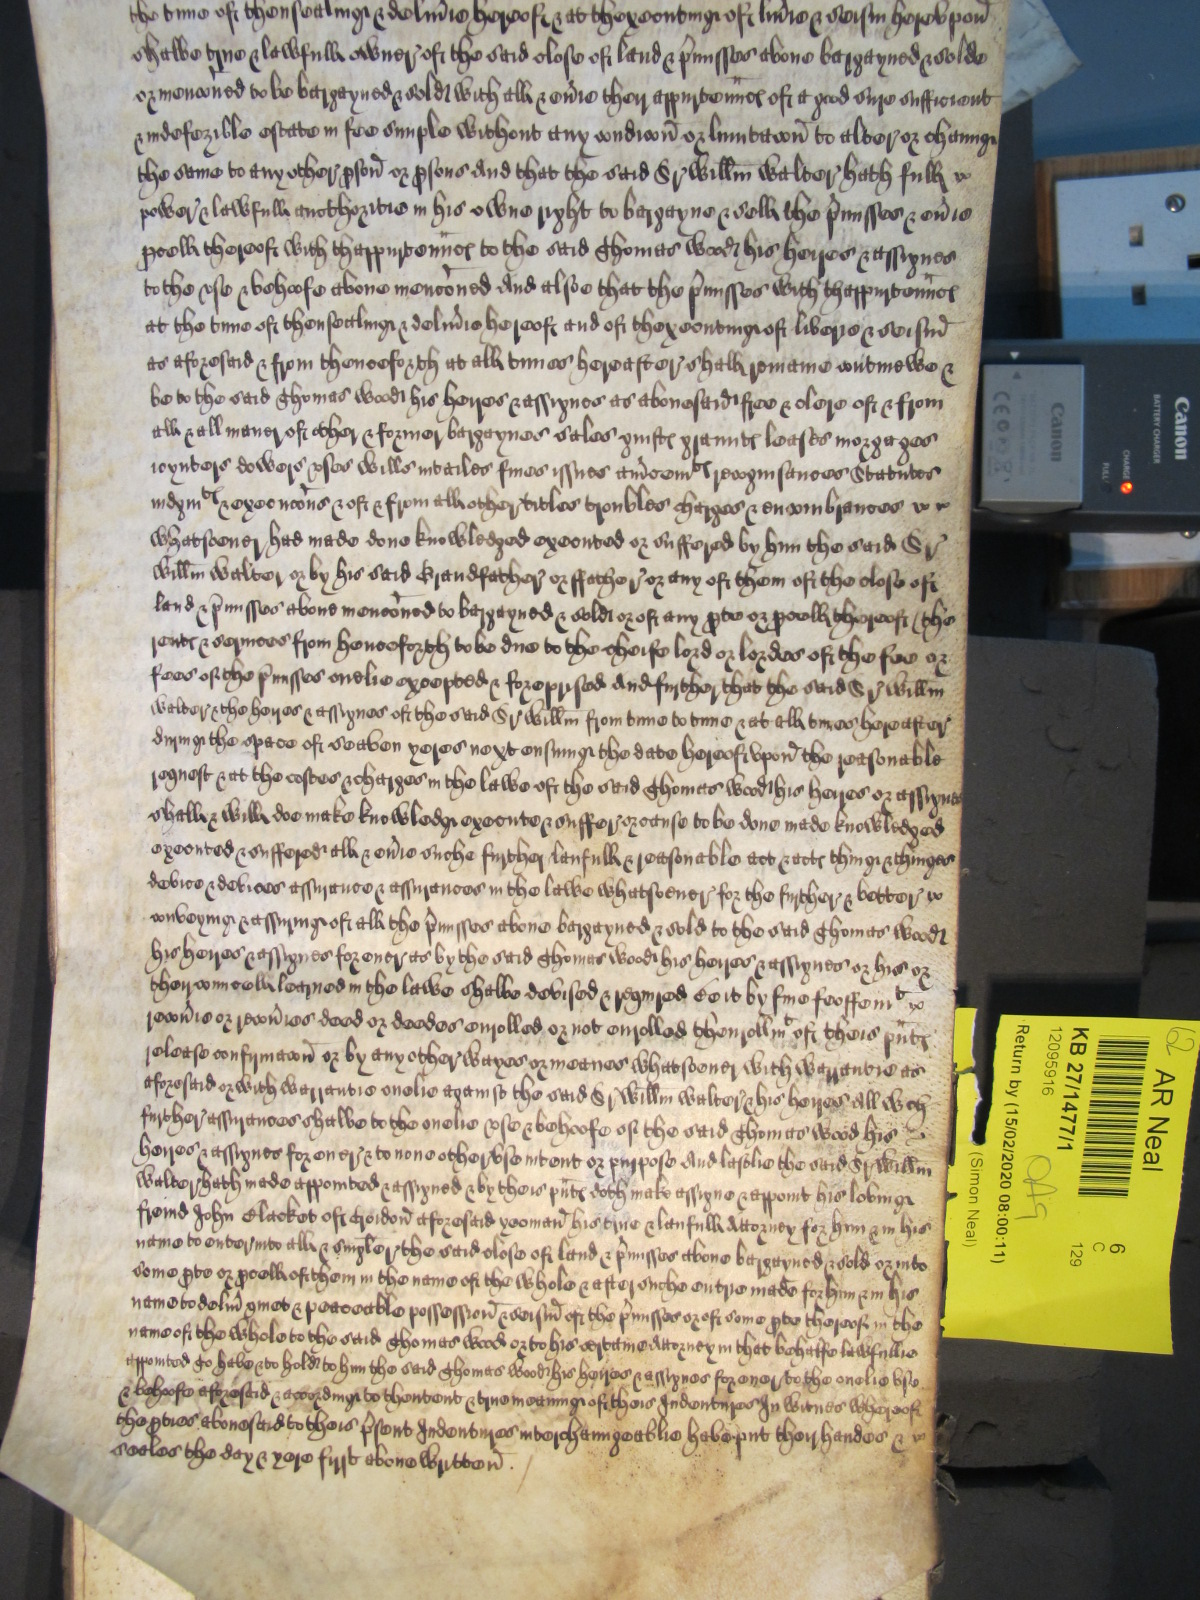 the tyme of thensealinge & deliv̄ie hereof & at thexecutinge of liv̄ie & seisin herevpon̄
shalbe true & lawfull owner of the said close of land & p̄misses aboue bargayned & solde
or menc̄oned to be bargayned & sold with all & ev̄ie their appurtenn̄c̄ of a good sure sufficient
& indefezible estate in fee simple without any condic̄on̄ or limitac̄on̄ to alter or change
the same to any other p̱son̄ or p̱sons And that the said Sr Willm̄ Walter hath full
power & lawfull authoritie in his owne right to bargayne & sell the p̄misses & ev̄ie
p̱cell thereof with thappurtenn̄c̄ to the said Thomas Wood his heires & assignes
to the vse & behoofe aboue menc̄oned And alsoe that the p̄misses with thappurtenn̄c̄
at the tyme of thensealinge & deliv̄ie hereof and of thexecutinge of liverie & seisin̄
as aforesaid & from thenceforth at all tymes hereafter shall remaine contynewe &
be to the said Thomas Wood his heires & assignes as abouesaid free & clere of & from
all & all maner of other & former bargaynes sales guiftc̄ grauntc̄ leases morgages
ioynters dowers vses wills intailes fines issues am̄cem̄tc̄ recognisances Statutes
iudgm̄tc̄ & execuc̄ons & of & from all other titles troubles charges & encombrances
whatsoeuer had made done knowledged executed or suffered by him the said Sr
Willm̄ Walter or by his said Grandfather or ffather or any of them of the close of
land & p̄misses aboue menc̄oned to bargayned & sold or of any p̱te or p̱cell thereof (the
rentc̄ & seruices from henceforth to be due to the cheife lord or lordes of the fee or
fees of the p̄misses onelie excepted & foreprised And further that the said Sr Willm̄
Walter & the heires & assignes of the said Sr Willm̄ from tyme to tyme & at all tymes hereafter
duringe the space of seaven yeres next ensuinge the date hereof vpon̄ the reasonable
request & at the costes & charges in the lawe of the said Thomas Wood his heires or assignes
shall & will doe make knowledge execute & suffer or cause to be done made knowledged
executed & suffered all & ev̄ie suche further laufull & reasonable act & actc̄ thinge & thinges
device & devices assurance & assurances in the lawe whatsoeuer for the further & better
conveyinge & assuringe of all the p̄misses aboue bargayned & sold to the said Thomas Wood
his heires & assignes for euer as by the said Thomas Wood his heires & assignes or his or
their councell learned in the lawe shalbe devised & required Be it by fine feoffem̄t
recov̄ie or recov̄ies deed or deedes enrolled or not enrolled thenrollm̄t of theis p̄ntc̄
release confirmac̄on̄ or by any other wayes or meanes whatsoeuer with warrantie as
aforesaid or with warrantie onelie against the said Sr Willm̄ Walter & his heires All wch
further assurances shalbe to the onelie vse & behoofe of the said Thomas Wood his
heires & assignes for euer & to none other vse intent or purpose And lastlie the said Sr Willm̄
Walter hath made appointed & assigned & by theis p̄ntc̄ doth make assigne & appoint his lovinge
freind John of Croidon̄ aforesaid yeoman̄ his true & laufull Attorney for him & in his
name to enter into all & singler the said close of land & p̄misses aboue bargayned & sold or into
some p̱te or p̱cell of them in the name of the whole & after suche entrie made for him & in his
name to deliv̄ quiet & peaceable possession̄ & seisin̄ of the p̄misses or of some p̱te thereof in the
name of the whole to the said Thomas Wood or to his certaine Attorney in that behalfe lawfullie
appointed To haue & to hold to him the said Thomas Wood his heires & assignes for euer to the onelie vse
& behoofe aforesaid & accordinge to thentent & true meaninge of theis Indentures In witnes whereof
the p̱ties abouesaid to theis p̄sent Indentures interchangeablie haue put their handes &
seales the day & yere first aboue written̄.
Canon
BATTERY CHARGER
CHARGE
FULL
Canon
62
AR Neal
KB 27/1477/1
12095916
Return by (15/02/2020 08:00:11)
(Simon Neal)
6
C
129